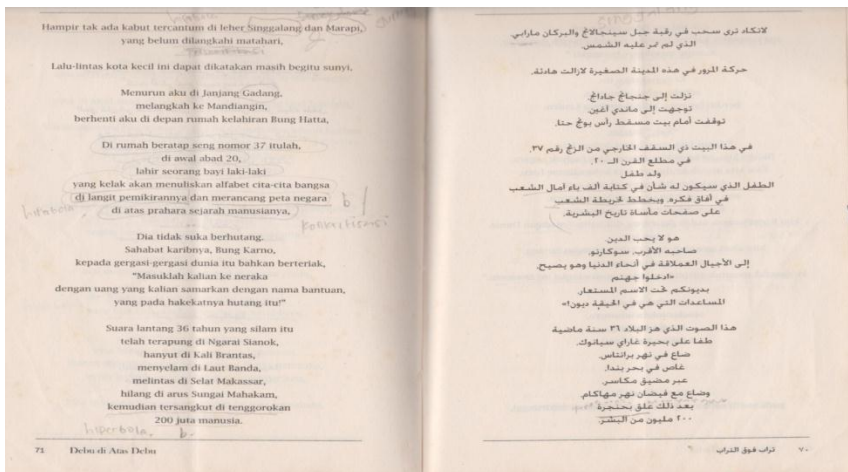 Hampir tak ada kabut tercantum di leher Singgalang dan Marapi,
yang belum dilangkahi matahari,
Lalu-lintas kota kecil ini dapat dikatakan masih begitu sunyi.
Menurun aku di Janjang Gadang,
melangkah ke Mandiangin,
berhenti aku di depan rumah kelahiran Bung Hatta,
Di rumah beratap seng nomor 37 itulah,
di awal abad 20,
lahir seorang bayi laki-laki
yang kelak akan menuliskan alfabet cita-cita bangsa
di langit pemikirannya dan merancang peta negara
di atas prahara sejarah manusianya,
b
hiperbola
Dia tidak suka berhutang.
Sahabat karibnya, Bung Karno,
kepada gergasi-gergasi dunia itu bahkan berteriak,
"Masuklah kalian ke neraka
dengan uang yang kalian samarkan dengan nama bantuan,
yang pada hakekatnya hutang itu!"
Suara lantang 36 tahun yang silam itu
telah terapung di Ngarai Sianok,
hanyut di Kali Brantas,
menyelam di Laut Banda,
melintas di Selat Makassar,
hilang di arus Sungai Mahakam,
kemudian tersangkut di tenggorokan
200 juta manusia.
hiperbola b.
71 Debu di Atas Debu
لانكاد نرى سحب في رقبة جبل سينجالانج والبركان مارابي
الذي لم تمر عليه الشمس.
حركة المرور في هذه المدينة الصغيرة لازالت هادئة.
نزلت إلى جنجانج جادانج.
توجهت إلى ماندي أغين.
توقفت أمام بيت مسقط رأس بونج حتا.
في هذا البيت ذي السقف الخارجي من الزنج رقم ٣٧.
في مطلع القرن الـ ٢٠.
ولد طفل
الطفل الذي سيكون له شأن في كتابة ألف باء آمال الشعب
في آفاق فكره. ويخطط لخريطة الشعب
على صفحات مأساة تاريخ البشرية.
هو لا يحب الدين.
صاحبه الأقرب. سوكارنو.
إلى الأجيال العملاقة في أنحاء الدنيا وهو يصيح.
«ادخلوا جهنم
بديونكم تحت الاسم المستعار.
المساعدات التي هي في الحقيقة ديون!»
هذا الصوت الذي هز البلاد ٣٦ سنة ماضية
طفا على بحيرة غاراي سيانوك.
ضاع في نهر برانتاس.
غاص في بحر بندا.
عبر مضيق مكاسر.
وضاع مع فيضان نهر مهاكام.
بعد ذلك علق بحنجرة
٢٠٠ مليون من البشر.
تراب فوق التراب ٧٠